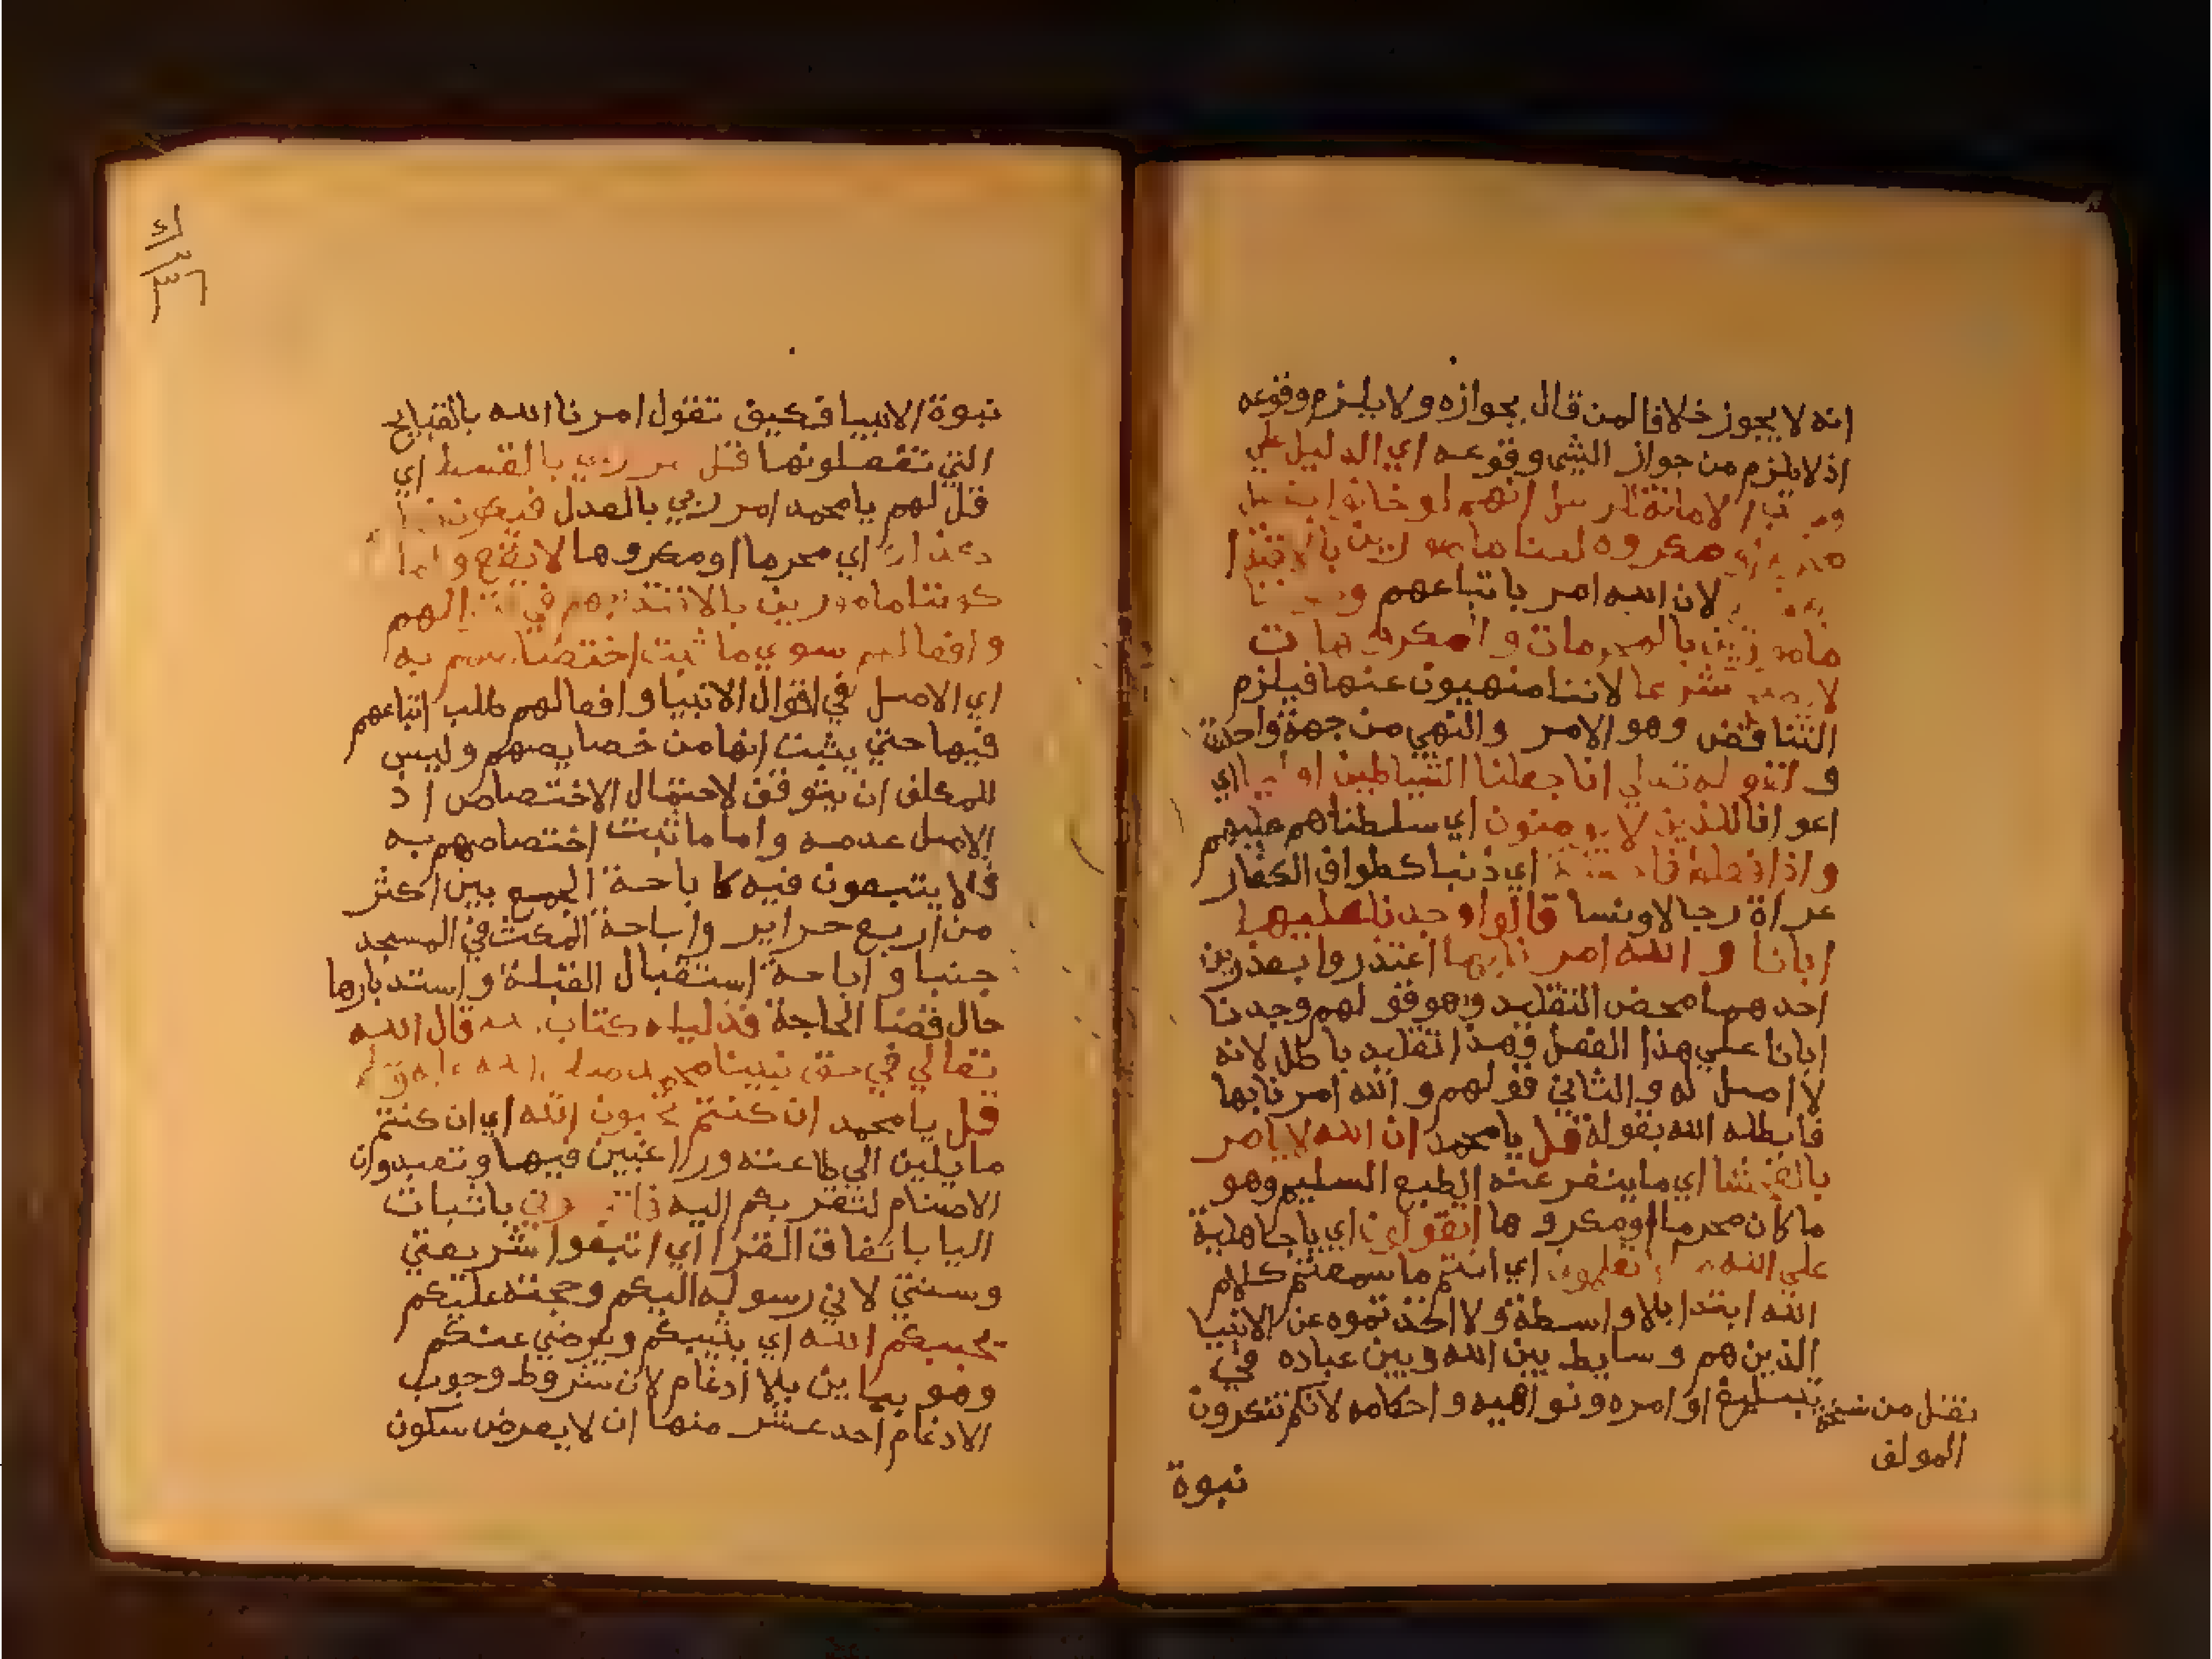 انه لا يجوز خلافا لمن قال بجوازه ولا يلزم وقوعه
اذ لا يلزم من جواز الشي وقوعه اي الدليل علي
الامانة انهم لو خانوا
مكروه لكنا مامورين بالاقتدا
لان الله امر باتباعهم
مامورين بالمحرمات والمكروهات
شرعا لاننا منهيون عنها فيلزم
التناقض وهو الامر والنهي من جهة واحدة
انا جعلنا الشياطين اوليا اي
اعوانا للذين لا يومنون اي سلطناهم عليهم
واذا فعلوا فاحشة اي ذنبا كطواف الكفار
عراة رجالا ونسا قالوا وجدنا عليها
ابانا والله امرنا بها اعتذروا بعذرين
احدهما محض التقليد وهو قولهم وجدنا
ابانا علي هذا الفعل فهذا تقليد باطل لانه
لا اصل له والثاني قولهم والله امرنا بها
فابطله الله بقوله قل يا محمد ان الله لا يامر
بالفحشا اي ما ينفر عنه الطبع السليم وهو
ما كان محرما او مكروها اتقولون اي يا جاهلية
علي الله تعلمون اي انتم ما سمعتم كلام
الله ابتدا بلا واسطة ولا اخذتموه عن الانبيا
الذين هم وسايط بين الله وبين عباده في
تبليغ اوامره ونواهيه واحكامه لانكم تنكرون
نقل من نسخة
المولف
نبوة
نبوة الانبيا فكيف تقول امرنا الله بالقبايح
التي تفعلونها قل امر ربي بالقسط اي
قل لهم يا محمد امر ربي بالعدل
اي محرما او مكروها لا يقع
كوننا مامورين بالاقتدا بهم في اقوالهم
وافعالهم سوي ما ثبت اختصاصهم به
اي الاصل في اقوال الانبيا وافعالهم طلب اتباعهم
فيها حتي يثبت انها من خصايصهم وليس
للمكلف ان يتوقف لاحتمال الاختصاص اذ
الاصل عدمه واما ما ثبت اختصاصهم به
فلا يتبعون فيه كاباحة الجمع بين اكثر
من اربع حراير واباحة المكث في المسجد
جنبا واباحة استقبال القبلة واستدبارها
حال قضا الحاجة فدليله كتاب الله قال الله
تعالي في حق نبينا محمد صلي الله عليه
قل يا محمد ان كنتم تحبون الله اي ان كنتم
مايلين الي طاعته وراغبين فيها وتعبدون
الاصنام لتقربكم اليه فاتبعوني باثبات
اليا باتفاق القرا اي اتبعوا شريعتي
وسنتي لاني رسوله اليكم وحجته عليكم
يحببكم الله اي يثيبكم ويرضي عنكم
وهو بباين بلا ادغام لان شروط وجوب
الادغام احد عشر منها ان لا يعرض سكون